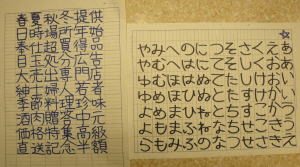 春夏秋冬提供
日時場所年始
奉仕超買得品
目玉処分広告
大売出専門店
紳士婦人若者
季節料理 味
酒肉 客中元
価格 集高級
直送特記念半額
やみへのにつそさくえあ
やむへはにてそしくおあ
ゆむほはぬてたしけおい
ゆめほひぬとたすけかい
よめまひねとちすこかう
よもまふねなちせこきう
らもみふのなつせさきえ